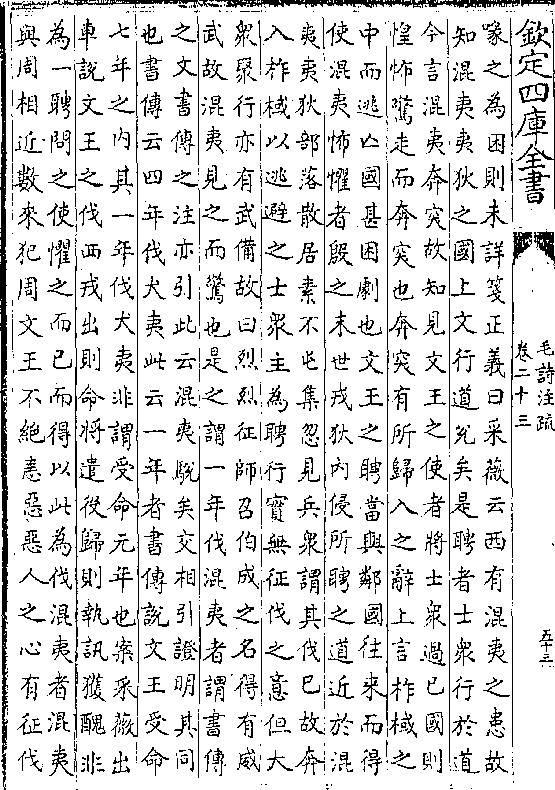 欽定四庫全書
毛詩注疏
卷二十三
五十三
喙之為困則未詳箋正義曰采薇云西有混夷之患故
知混夷夷狄之國上文行道兊矣是聘者士衆行於道
今言混夷奔突故知見文王之使者將士衆過已國則
惶怖驚走而奔突也奔突有所歸入之辭上言柞棫之
中而逃亾國甚困劇也文王之聘當與鄰國往來而得
使混夷怖懼者殷之末世戎狄內侵所聘之道近於混
夷夷狄部落散居素不屯集忽見兵衆謂其伐已故奔
入柞棫以逃避之士衆主為聘行實無征伐之意但大
衆聚行亦有武備故曰烈烈征師召伯成之名得有威
武故混夷見之而驚也是之謂一年伐混夷者謂書傳
之文書傳之注亦引此云混夷駾矣交相引證明其同
也書傳云四年伐犬夷此云一年者書傳説文王受命
七年之內其一年伐犬夷非謂受命元年也案采薇出
車説文王之伐西戎出則命將遣役歸則執訊獲醜非
為一聘問之使懼之而已而得以此為伐混夷者混夷
與周相近數來犯周文王不絶恚惡惡人之心有征伐